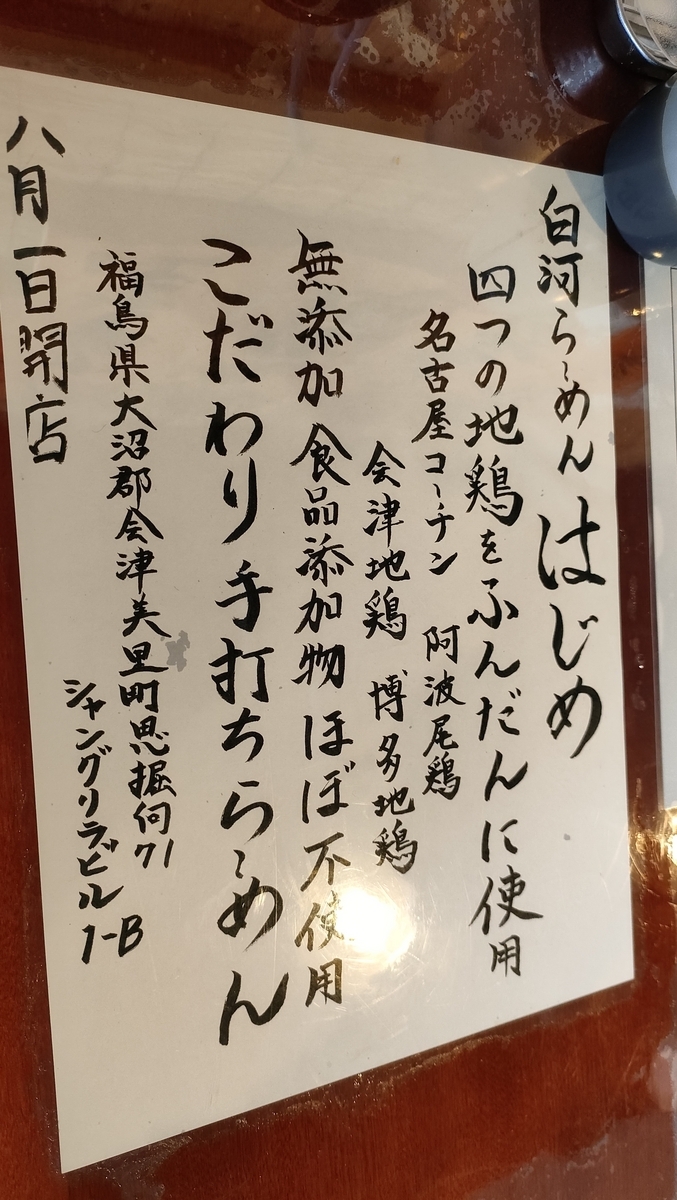 白河らーめん はじめ
四つの地鶏をふんだんに使用
名古屋コーチン 阿波尾鶏
会津地鶏 博多地鶏
無添加 食品添加物 ほぼ不使用
こだわり 手打ちらーめん
福島県大沼郡会津美里町思堀向71
シャングリラビル 1-B
八月一日開店